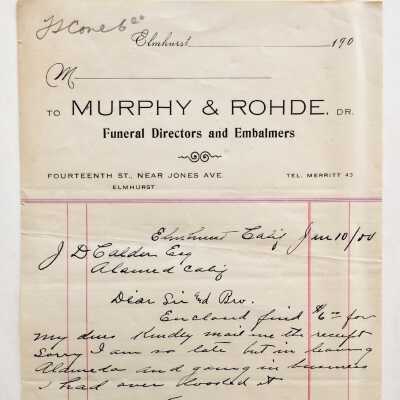 Elmhurst 190
M
TO MURPHY & ROHDE, DR.
Funeral Directors and Embalmers
FOURTEENTH ST., NEAR JONES AVE. TEL. MERRITT 43
ELMHURST
Elmhurst Calif Jun 10/00
J D Calder Esq
Alamed Calif
Dear Sir and Bro.
Enclosed find $6.00 for
my dues Kindly mail me the receipt
Sorry I am so late but in leaving
Alameda and going in business
I had over looked it